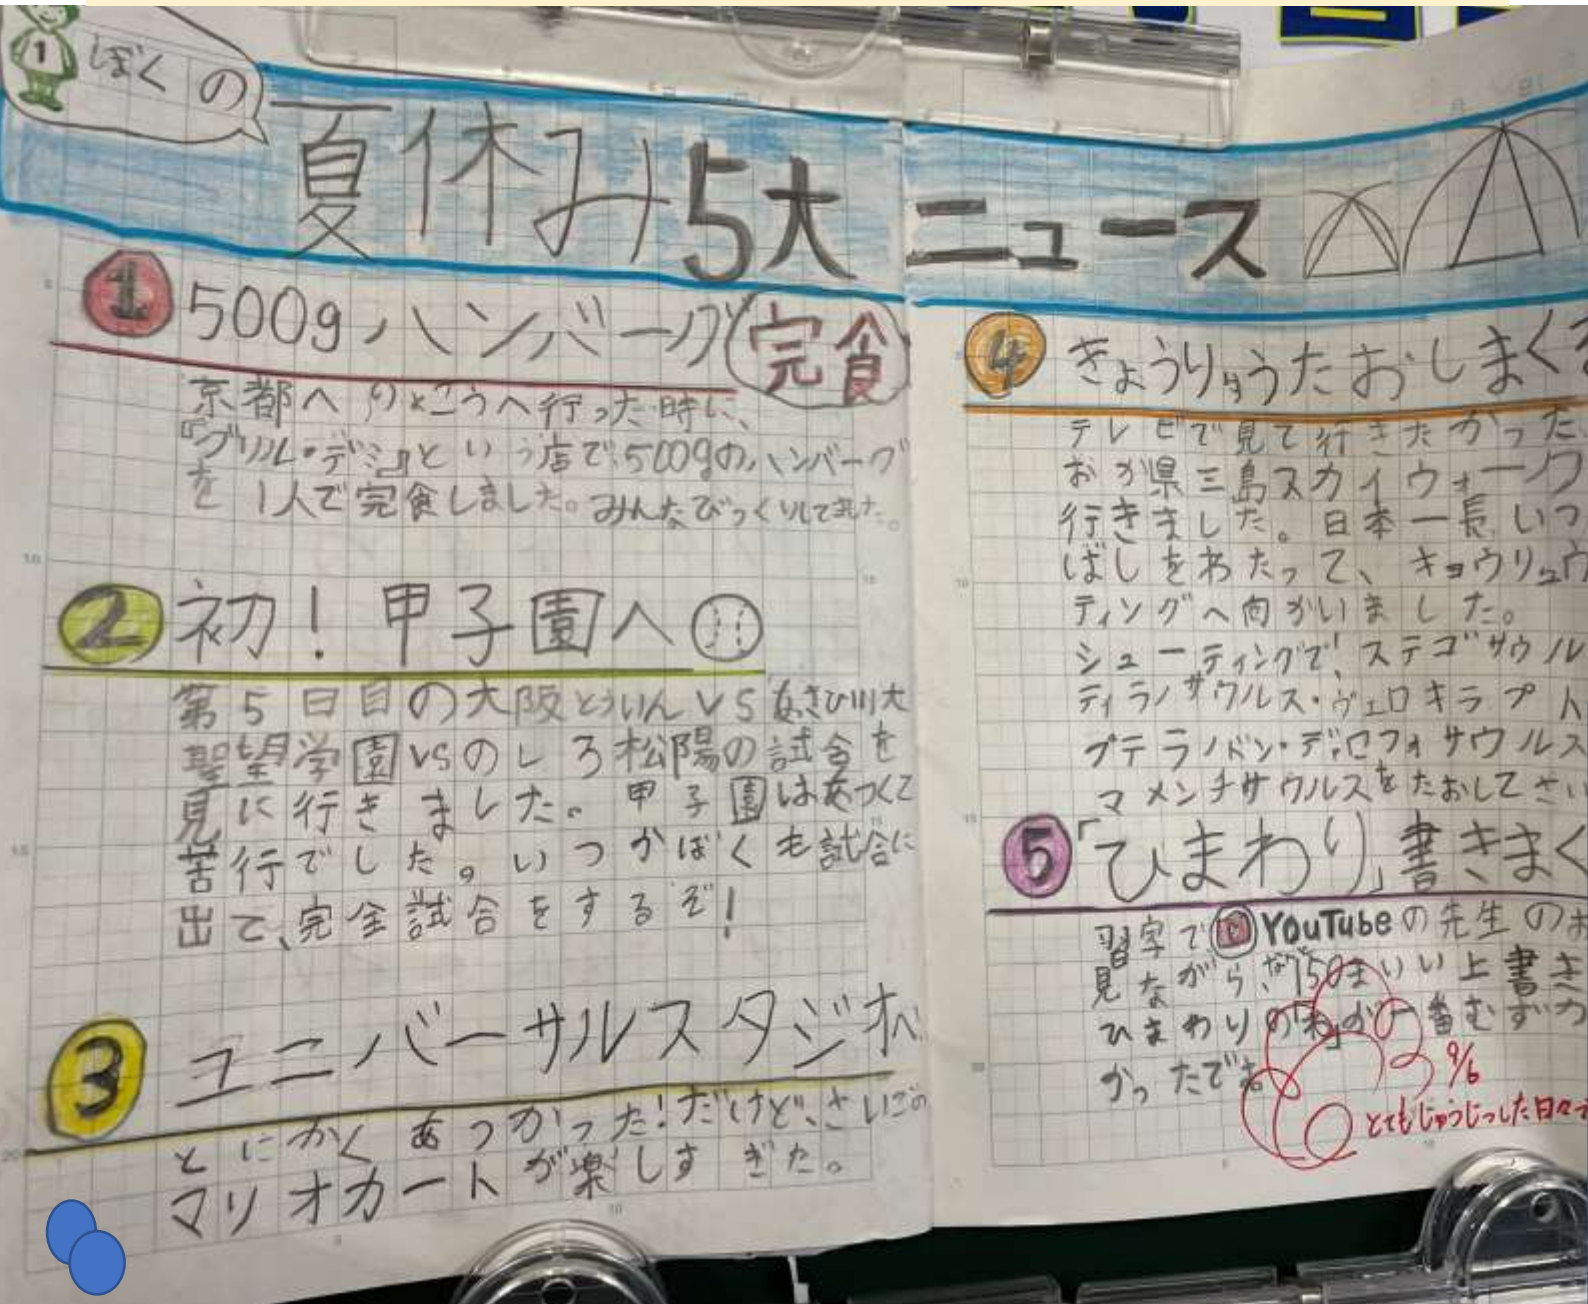 1
ぼくの
夏休み5大ニュース
1 500gハンバーグ 完食
京都へりょこうへ行った時に、
『グリル・デミ』という店で、500gのハンバーグ
を1人で完食しました。みんなびっくりしてました。
2 初!甲子園へ
第5日目の大阪とういんVSあさひ川大
聖望学園VSのしろ松陽の試合を
見に行きました。甲子園はあつくて
苦行でした。いつかぼくも試合に
出て、完全試合をするぞ!
3 ユニバーサルスタジオへ
とにかくあつかった!だけど、さいごの
マリオカートが楽しすぎた。
4 きょうりゅうたおしまくる
テレビで見て行きたかった
おか県三島スカイウォーク
行きました。日本一長いつ
ばしをわたって、キョウリュウ
ティングへ向かいました。
シューティングで、ステゴサウル
ティラノサウルス・ヴェロキラプト
プテラノドン・ディロフォサウルス
マメンチサウルスをたおしてさい
5 「ひまわり」書きまく
習字で YouTubeの先生のお
見ながら、なんと150まい以上書き
ひまわりの「わ」が一番むずか
かったです
9/6
とてもじゅうじつした日々